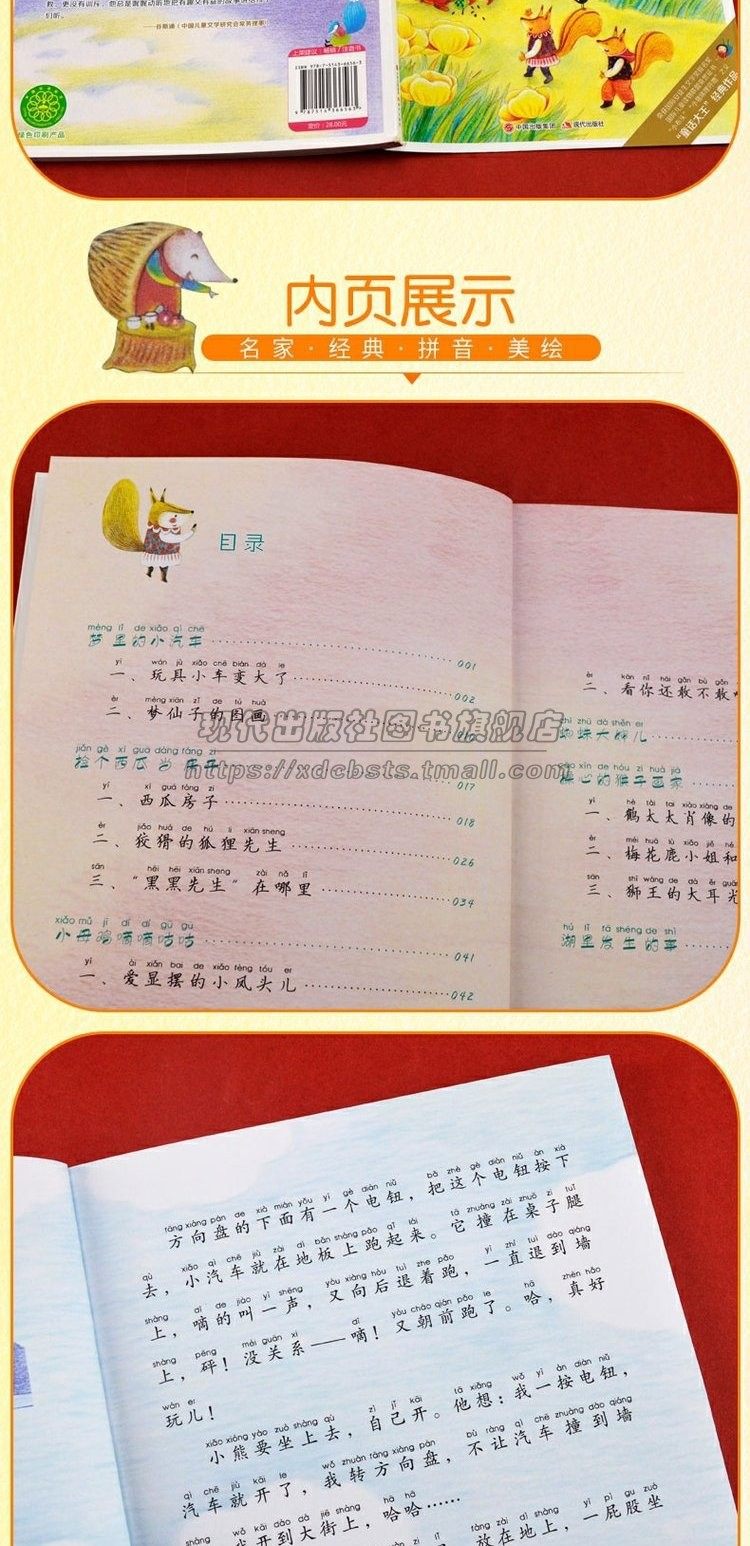 教，更没有训斥，他总是娓娓动听地把有趣又有益的故事讲给孩子
们听。
——谷斯涌（中国儿童文学研究会常务理事）
上架建议：畅销/注音书
ISBN 978-7-5143-6656-3
9787514366563
定价：28.00元
绿色印刷产品
中国出版集团 现代出版社
"童话大王"经典作品
内页展示
名家·经典·拼音·美绘
目录
mèng lǐ de xiǎo qì chē
梦里的小汽车 001
yī wán jù xiǎo chē biàn dà le
一、玩具小车变大了 002
èr mèng xiān zǐ de tú huà
二、梦仙子的图画 010
jiǎn gè xī guā dāng fáng zi
捡个西瓜当房子 017
yī xī guā fáng zi
一、西瓜房子 018
èr jiǎo huá de hú li xiān sheng
二、狡猾的狐狸先生 026
sān hēi hēi xiān sheng zài nǎ lǐ
三、“黑黑先生”在哪里 034
xiǎo mǔ jī dí dí gū gū
小母鸡嘀嘀咕咕 041
yī ài xiǎn bai de xiǎo fèng tóu er
一、爱显摆的小凤头儿 042
èr kàn nǐ hái gǎn bù gǎn
二、看你还敢不敢
zhī zhū dà shěn er
蜘蛛大婶儿
cū xīn de hóu zi huà jiā
粗心的猴子画家
yī hè tài tai xiào xiàng de
一、鹤太太肖像的
èr méi huā lù xiǎo jiě hé
二、梅花鹿小姐和
sān shī wáng de dà ěr guāng
三、狮王的大耳光
hú lǐ fā shēng de shì
湖里发生的事
现代出版社图书旗舰店
https://xdcbsts.tmall.com
fāng xiàng pán de xià miàn yǒu yí gè diàn niǔ bǎ zhè gè diàn niǔ àn xià
方向盘的下面有一个电钮，把这个电钮按下
qù xiǎo qì chē jiù zài dì bǎn shàng pǎo qǐ lái tā zhuàng zài zhuō zi tuǐ
去，小汽车就在地板上跑起来。它撞在桌子腿
shàng dí de jiào yì shēng yòu xiàng hòu tuì zhe pǎo yì zhí tuì dào qiáng
上，嘀的叫一声，又向后退着跑，一直退到墙
shàng pēng méi guān xi dí yòu cháo qián pǎo le hā zhēn hǎo
上，砰！没关系——嘀！又朝前跑了。哈，真好
wán er
玩儿！
xiǎo xióng yào zuò shàng qù zì jǐ kāi tā xiǎng wǒ yí àn diàn niǔ
小熊要坐上去，自己开。他想：我一按电钮，
qì chē jiù kāi le wǒ zhuàn fāng xiàng pán bù ràng qì chē zhuàng dào qiáng
汽车就开了，我转方向盘，不让汽车撞到墙
shàng wǒ kāi dào dà jiē shàng hā hā
我开到大街上，哈哈……
fàng zài dì shàng yí pì gu zuò
放在地上，一屁股坐